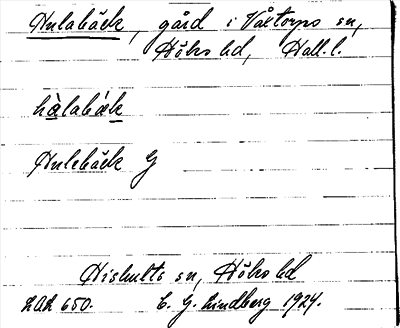 Hulabäck, gård i Våxtorps sn,
Höks hd, Hall. l.
hàlabäk
Hulebäck G
Hishults sn, Höks hd
LAL 650. C. G. Lindberg 1924.